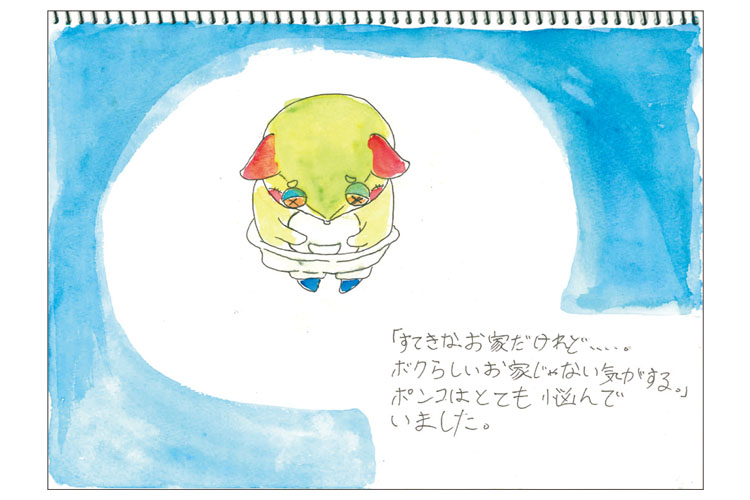 「すてきなお家だけれど、、、、。
ボクらしいお家じゃない気がする。」
ポンコはとても悩んで
いました。